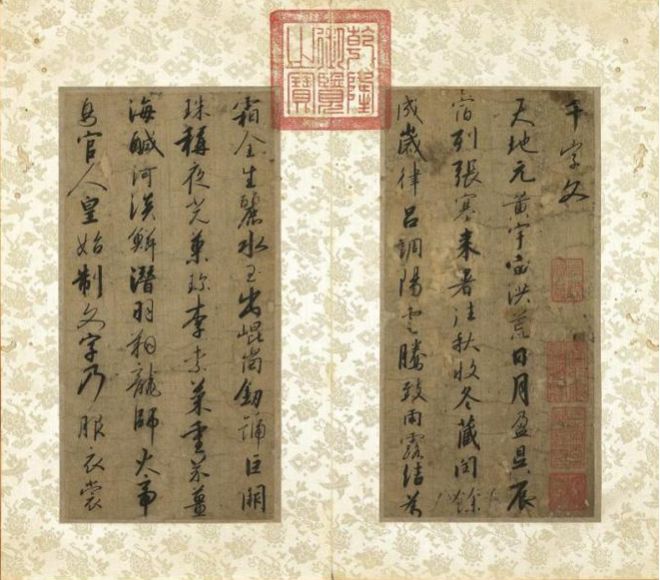 乾隆御覽之寶
千字文
天地元黃宇宙洪荒日月盈昃辰
宿列張寒来暑往秋收冬藏閏餘
成歲律吕調陽雲騰致雨露結為
霜金生麗水玉出崐崗劒號巨闕
珠稱夜光菓珎李柰菜重芥薑
海鹹河淡鱗潛羽翔龍師火帝
鳥官人皇始制文字乃服衣裳